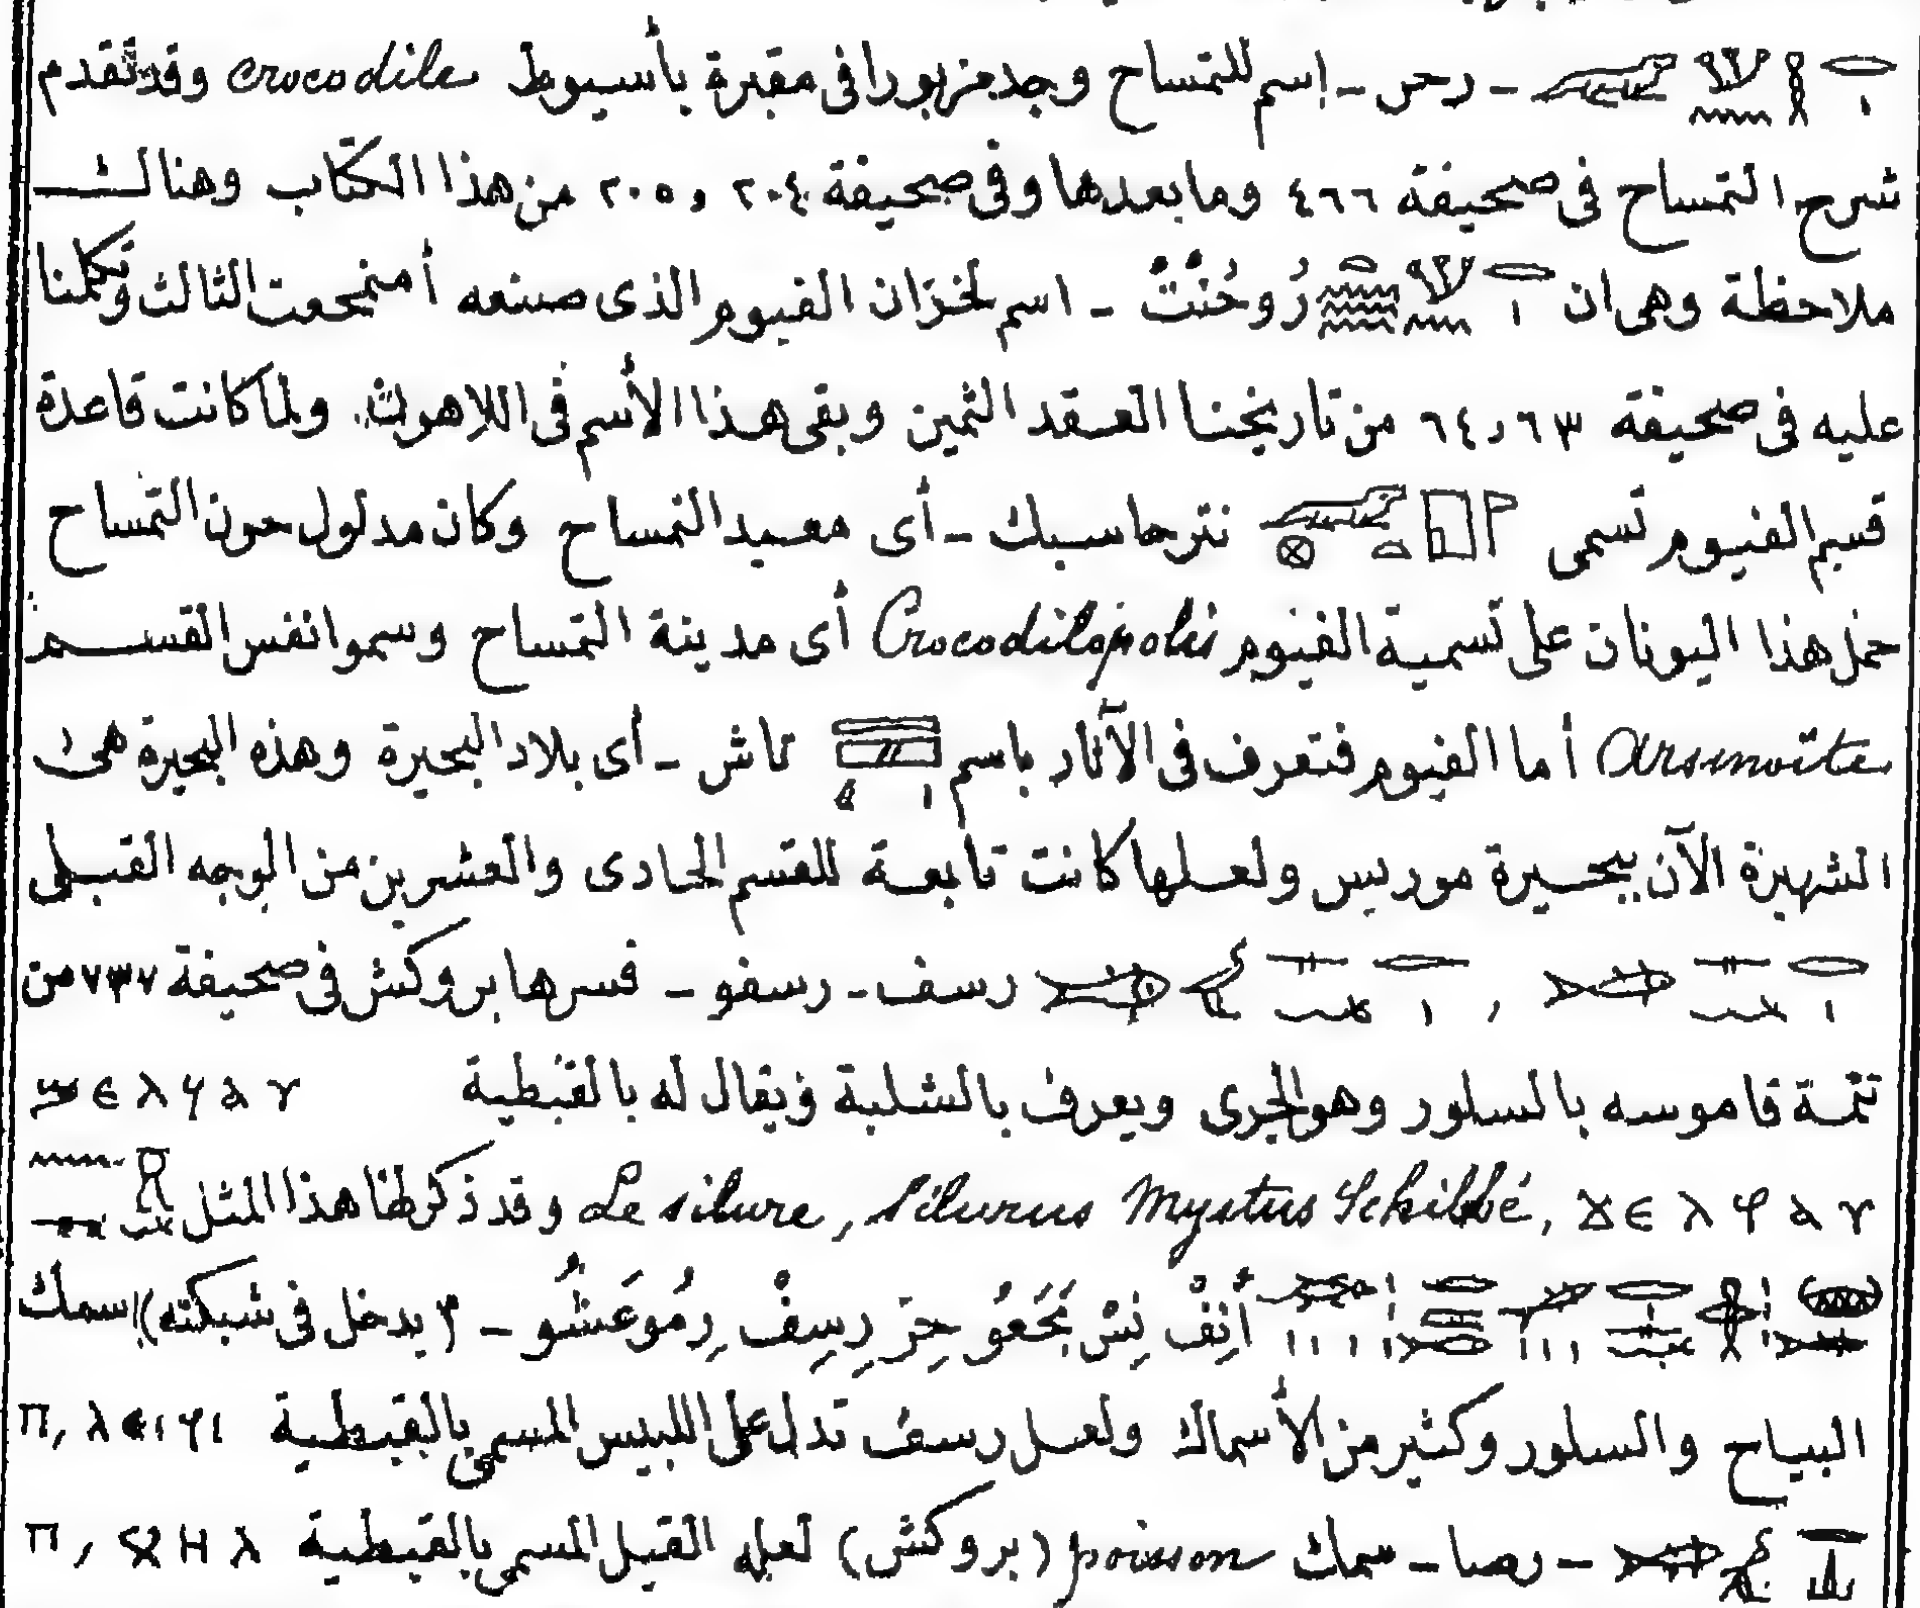 رحن ـ إسم للتمساح وجد مزبورا فى مقبرة بأسيوط crocodile وقد تقدم
شرح التمساح فى صحيفة ٤٦٦ وما بعدها وفى صحيفة ٢٠٤ و ٢٠٥ من هذا الكتاب وهنالك
ملاحظة وهى ان رُوحُنْتُ ـ اسم لخزان الفيوم الذى صنعه أمنمحعت الثالث وتكلمنا
عليه فى صحيفة ٦٣ و ٦٤ من تاريخنا العقد الثمين وبقى هذا الأسم فى اللاهون. ولما كانت قاعدة
قسم الفيوم تسمى نترحاسبك ـ أى معبد التمساح وكان مدلول حون التمساح
حمل هذا اليونان على تسمية الفيوم Crocodilopolis أى مدينة التمساح وسموا نفس القسم
Arsinoïte أما الفيوم فتعرف فى الآثار باسم تاش ـ أى بلاد البحيرة وهذه البحيرة هى
الشهيرة الآن ببحيرة موريس ولعلها كانت تابعة للقسم الحادى والعشرين من الوجه القبلى
, رسف ـ رسفو ـ فسرها بروكش فى صحيفة ٧٣٧ من
تتمة قاموسه بالسلور وهو الجرى ويعرف بالشلبة ويقال له بالقبطية
Le silure, Silurus Mystus Schilbé, وقد ذكرنا هذا المثل
أَنِفْ نِسْ بَحَعُو حِرَ رِسِفْ رِمُوعَشُو ـ ٣ (يدخل فى شبكته) سمك
البياح والسلور وكثير من الأسماك ولعل رسف تدل على اللبيس المسمى بالقبطية
ـ رصا ـ سمك poisson (بروكش) لعله القيل المسمى بالقبطية